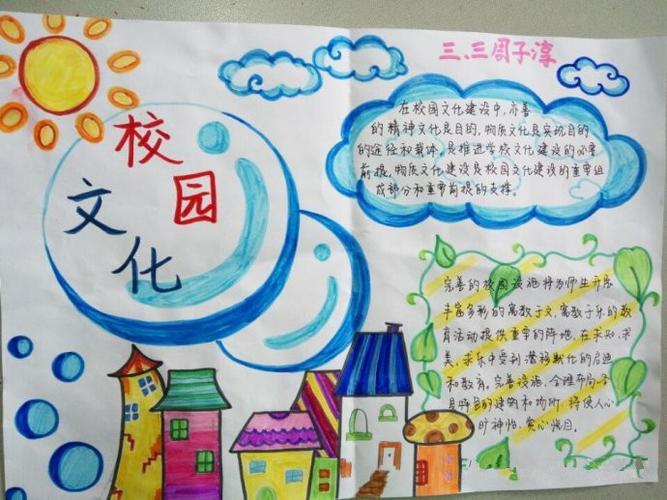 三、三周子淳
校
园
文
化
在校园文化建设中,亦善
的精神文化是目的,物质文化是实现目的
的途径和载体,是推进学校文化建设的必要
前提,物质文化建设是校园文化建设的重要组
成部分和重要前提的支撑。
完善的校园设施将为师生开展
丰富多彩的寓教于文,寓教于乐的教
育活动提供重要的阵地,在求知、求
美、求乐中受到潜移默化的启迪
和教育,完善设施、合理布局、各
具特色的建筑和场所,将使人心
旷神怡,赏心悦目。